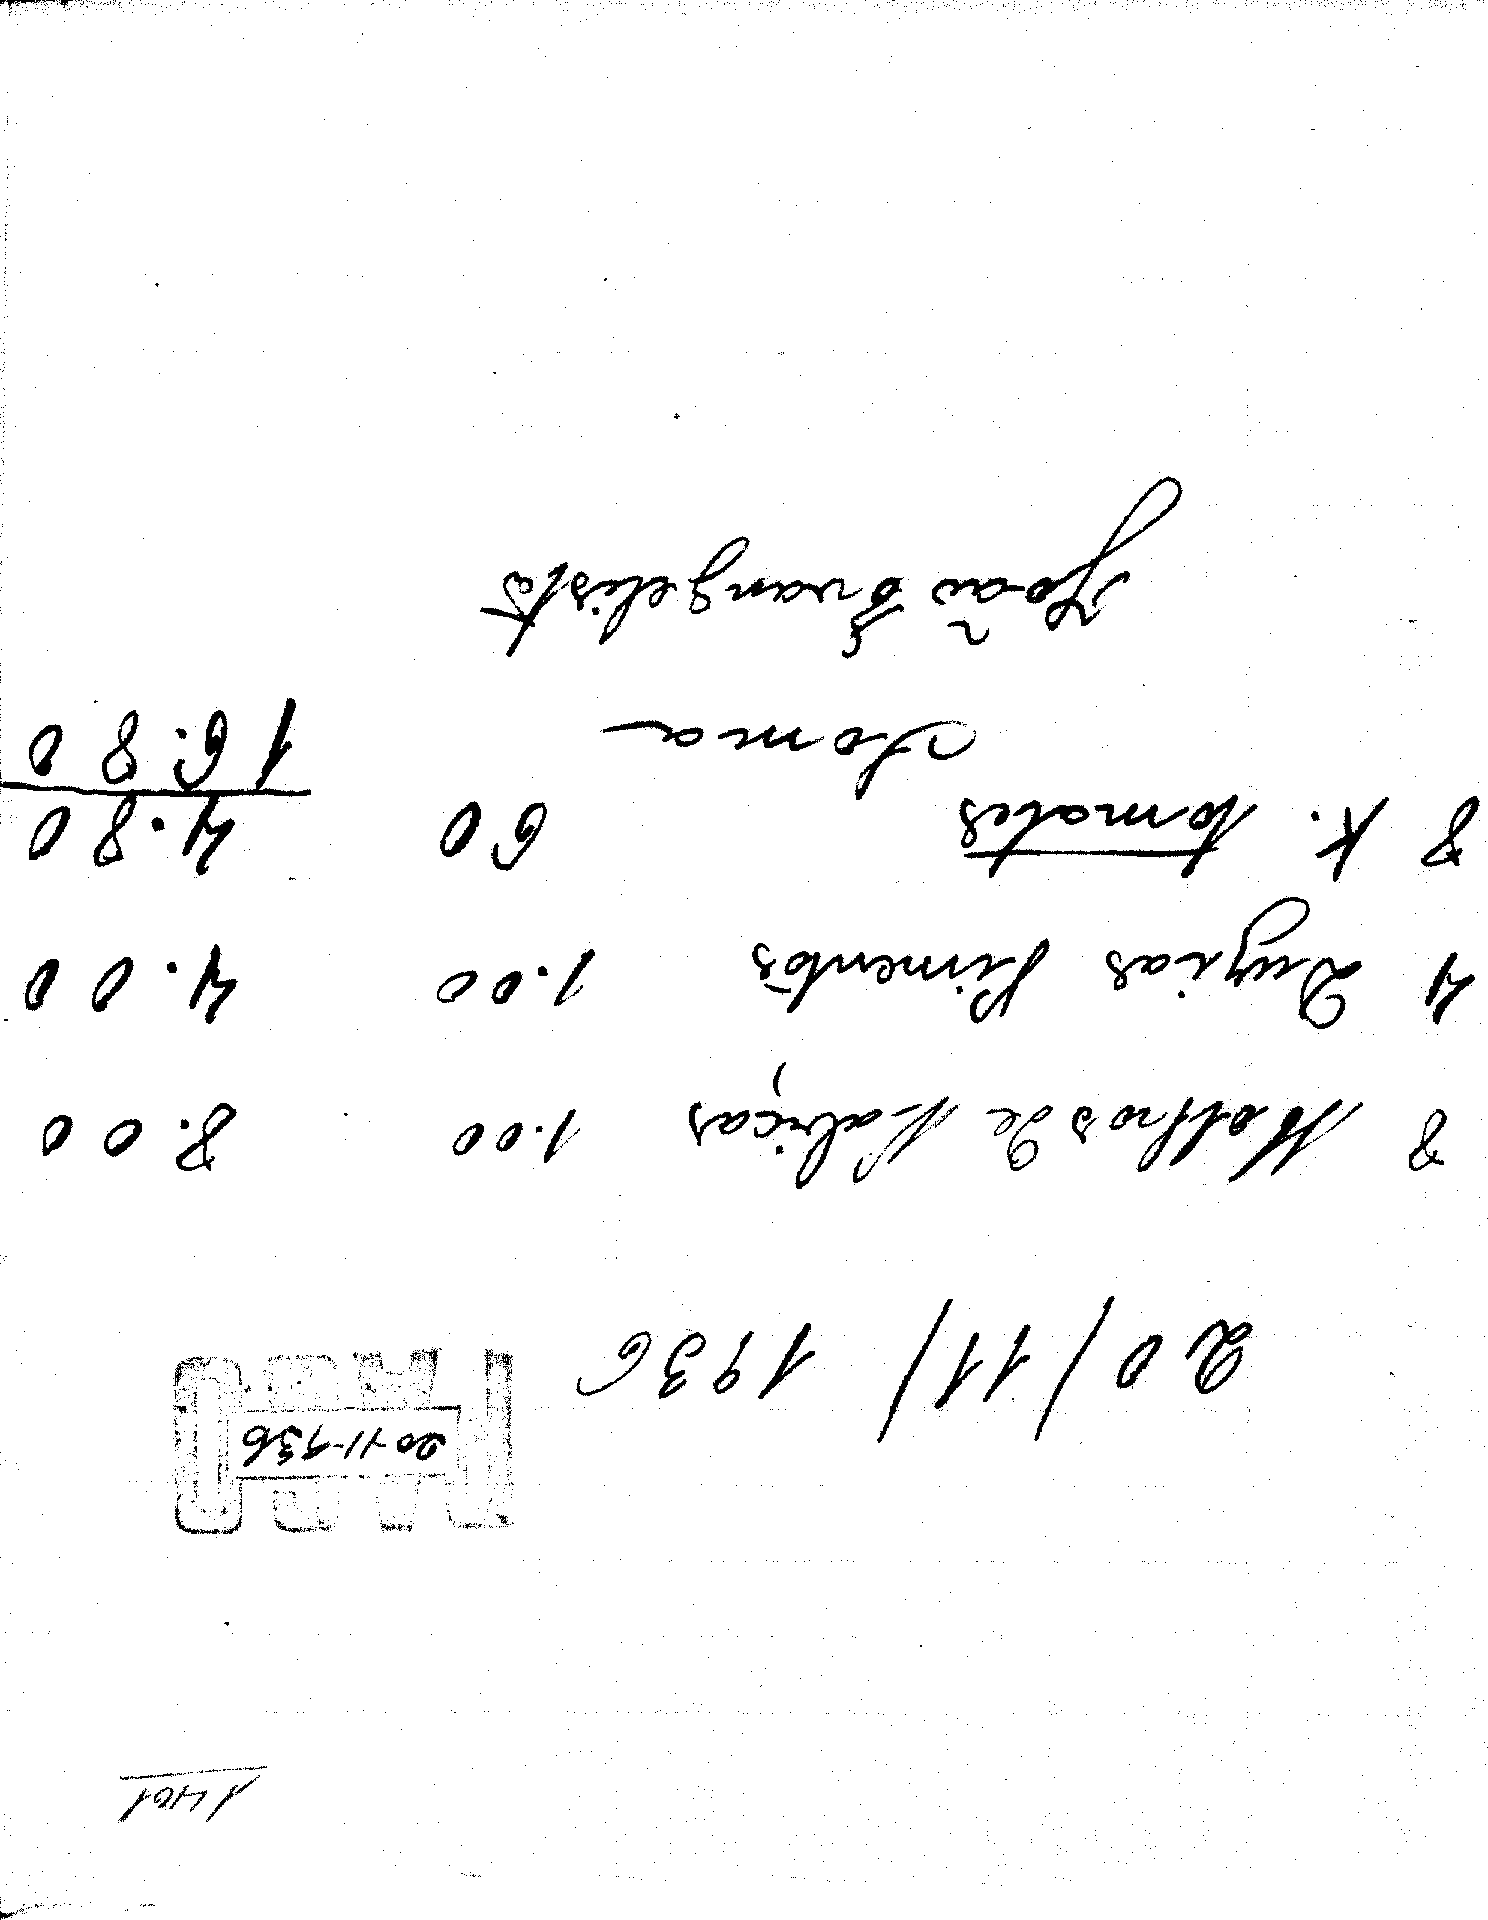 1401
PAGO
20-11-936
20/11/1936
8 Molhos de Nabiças 1.00 8.00
4 Duzias Pimentos 1.00 4.00
8 K. tomates 60 4.80
Soma 16.80
João Evangelista